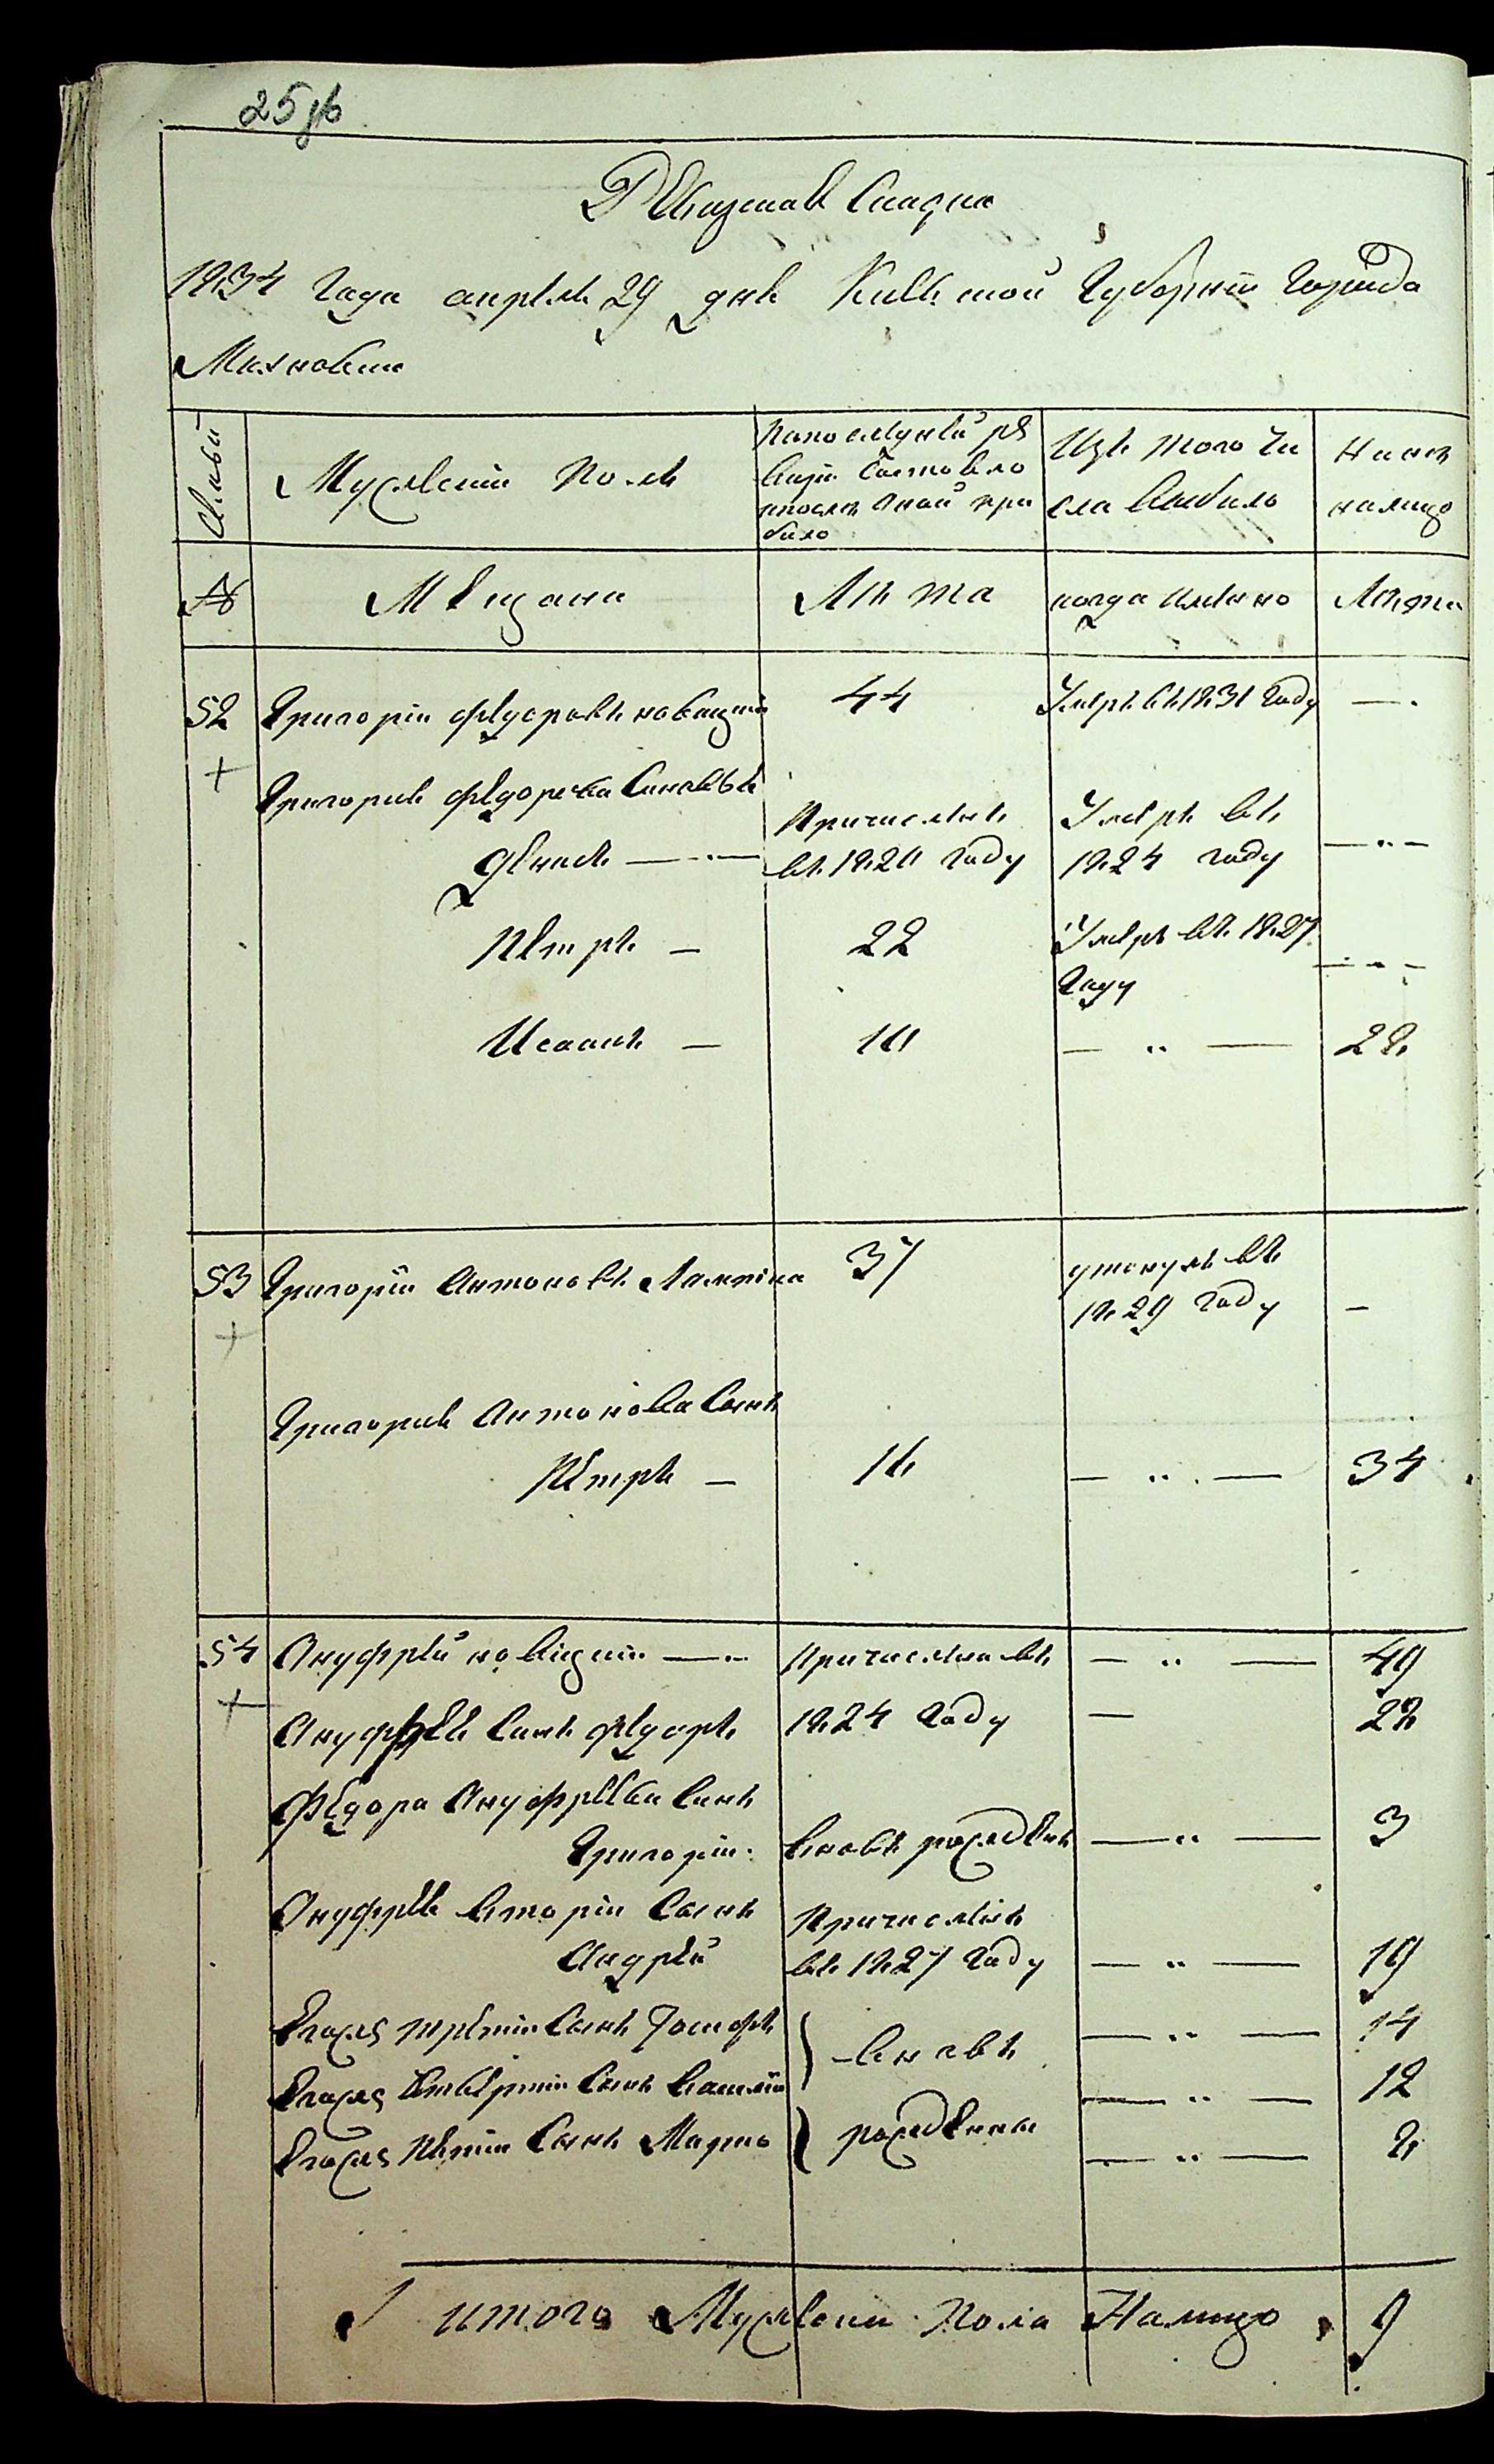 25 зв
Ревизская Сказка
1834 Года апреля 29 дня Киевской Губернiи Города
Махновки
Семьи
Мужеский полъ
По последней ре
визiи состояло
и после оной при
было
Изъ того чи
сла выбыло
Ныне
на лицо
№
Мещане
Лета
когда именно
Лета
52 Григорiй Федоровъ Новицкiй 44 Умеръ въ 1831 Году —
Григорiя Федорова Сыновья
Денисъ — Причисленъ въ 1820 Году Умеръ въ 1824 году —
Петръ — 22 Умеръ въ 1827 Году —
Исаакъ — 10 — 28
53 Григорiй Антоновъ 37 утонулъ въ 1829 Году —
Григорiя Антонова Сынъ
Петръ — 16 — 34
54 Ануфрей Новицкiй — Причислены въ — 49
Ануфрея Сынъ Федоръ 1824 Году — 28
Федора Ануфреева Сынъ
Григорiй вновь рожденъ — 3
Онуфрея вторiй Сынъ Причисленъ
Андрей въ 1827 Году — 19
Егожъ третiй Сынъ Iосифъ вновь — 14
Егожъ четвертiй Сынъ Василiй — 12
Егожъ пятiй Сынъ Марко рожденны — 8
итого Мужеска Пола На лицо 9